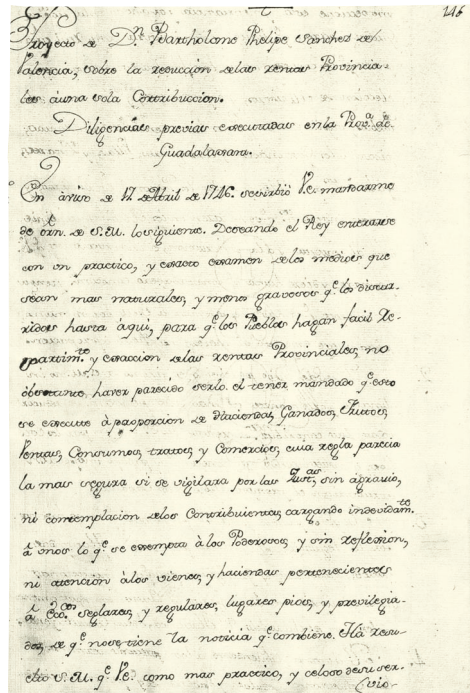 146
Proyecto de D.n Bartholome Phelipe Sanchez de
Valencia, sobre la reduccion delas rentas Provincia-
les á una sola Contribuccion.
Diligencias previas executadas en la Prov.a de
Guadalaxara.
En aviso de 17 de Abril de 1746. se sirbió V.e. mandarme
de orn. de S.M. lo siguiente. Deseando el Rey enterarse
con un practico, y exacto examen delos medios que
sean mas naturales, y menos gravosos q.e los discur-
ridos hasta aqui, para q.e los Pueblos hagan facil Re-
partim.to y exaccion delas rentas Provinciales, no
obstante, haver parecido serlo el tener mandado q.e esto
se execute á proporcion de Haciendas, Ganados, Frutos,
Ventas, Consumos, tratos, y Comercios, cuia regla parecia
la mas segura si se vigilara por las Just.as sin agravio,
ni contemplacion delos Contribuientes, cargando indevidam.te
á unos lo q.e se exempta á los Poderosos, y sin reflexion,
ni atencion álos vienes, y haciendas pertenecientes
á ecc.cos seglares, y regulares, lugares pios, y previlegia-
dos, de q.e nose tiene la noticia q.e combiene. Há resu-
elto S.M. q.e V.e. como mas practico, y celoso desu ser-
vio-